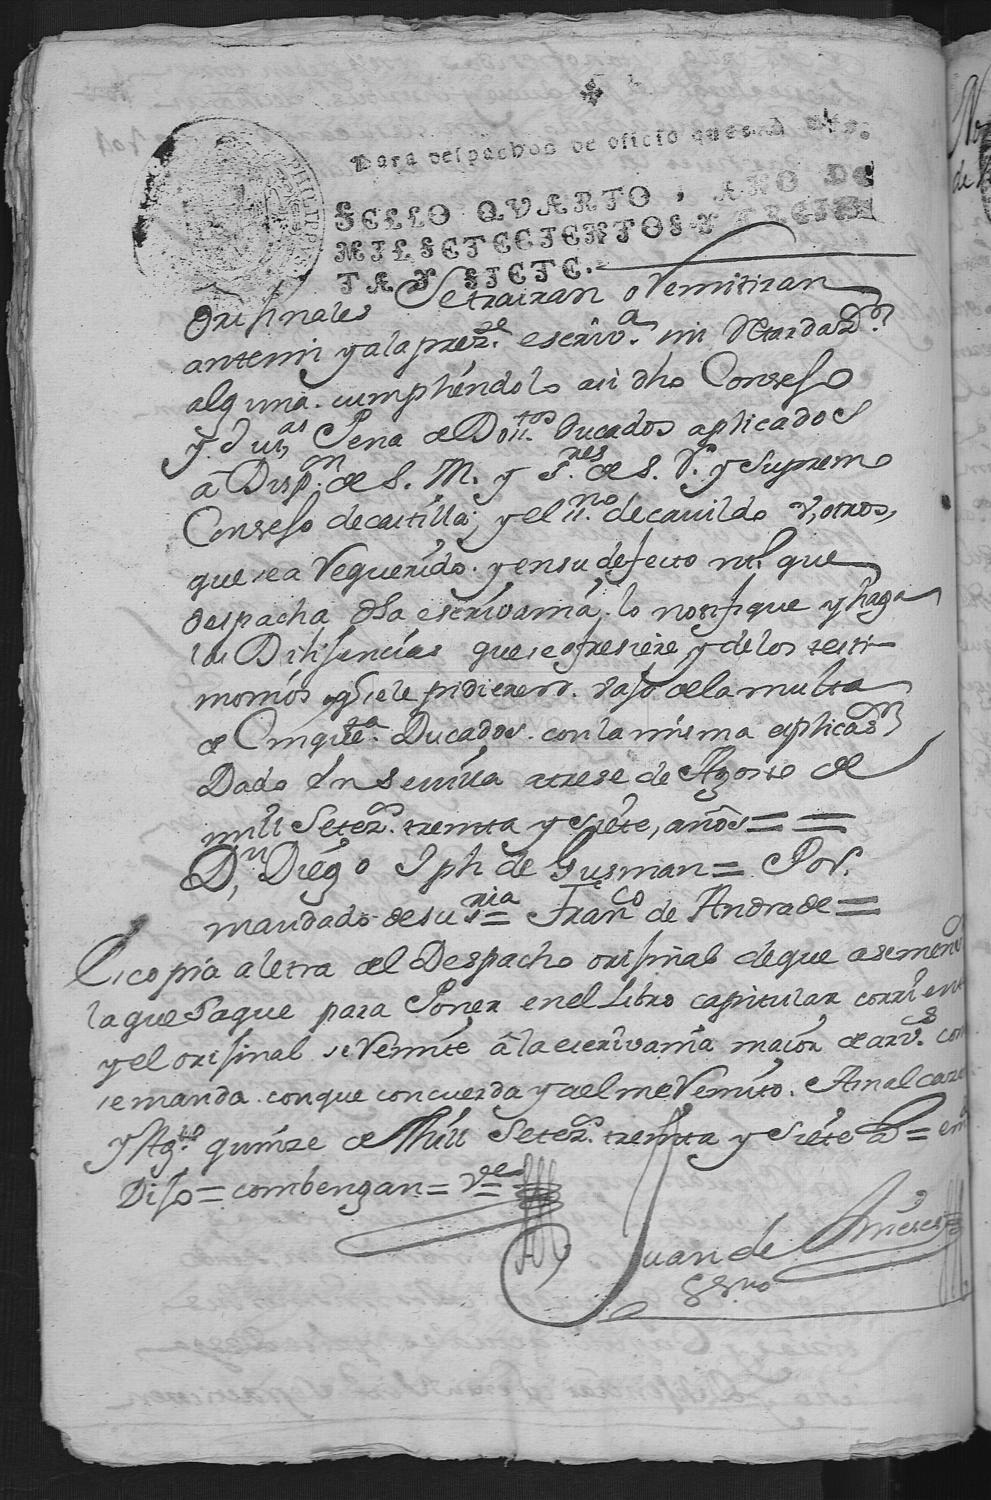 Para despachos de oficio quatro mrs.
SELLO QVARTO, AÑO DE
MIL SETECIENTOS Y TREIN
TA Y SIETE.
Orijinales Se trairan o Remitiran
antemi y a la preste. escrivª. sin Retardazon
alguna. cumpliéndolo asi dho Consejo
y Jusas Pena de Dositos Ducados aplicados
â Dispon. de S. M. y Sres. de S. Rl. y Supremo
Consejo de castilla; y el ssno. de cavildo u, otros,
que sea Requerido. y en su defecto el que
despacha dha escrivanía, lo notifique y haga
las Dilijencias que se ofresiere y de los testi-
monios q se le pidieren. vajo de la multa
de Cinquta. Ducados. con la misma aplicazon
Dado En Sevilla a trese de Agosto de
mill Setezs. treinta y siete, años = =
Dn, Diego Jph de Gusman = Por.
mandado de su sria = Franco de Andrade =
Es copia a letra del Despacho orijinal de que ase menon
la que Saque para Poner en el Libro capitular corrient
y el orijinal se Remite â la escrivanía maior de arvs. com
se manda. con que concuerda y a el me Remito. Arnalcazar
y Agto quinze de Mill Setezs. treinta y Siete as = emdo
Dijo = combengan = Ve =
Juan de
Essno